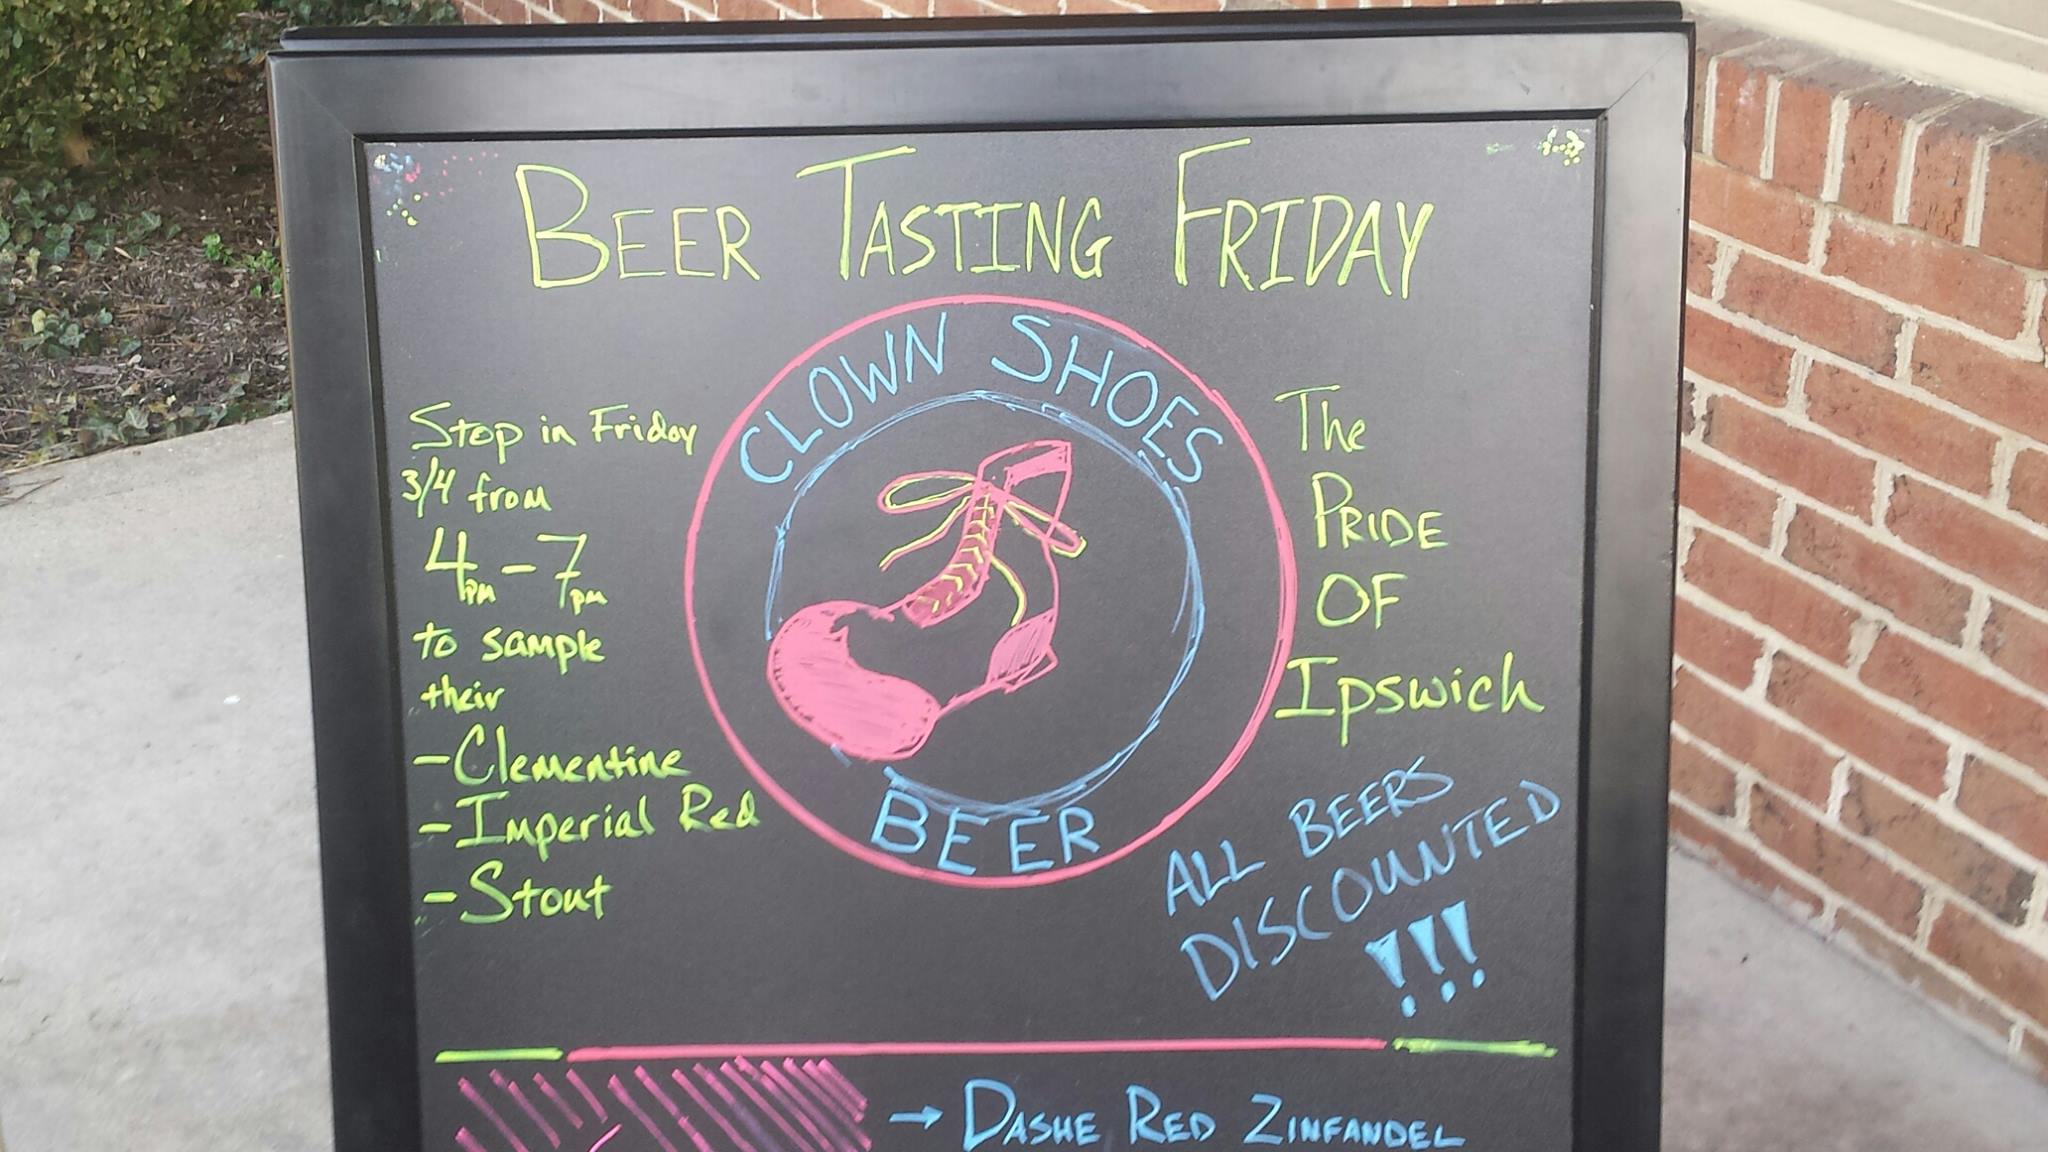 BEER TASTING FRIDAY
CLOWN SHOES
BEER
Stop in Friday
3/4 from
4pm - 7pm
to sample
their
- Clementine
- Imperial Red
- Stout
The
PRIDE
OF
Ipswich
ALL BEERS
DISCOUNTED
!!!
→ DASHE RED ZINFANDEL